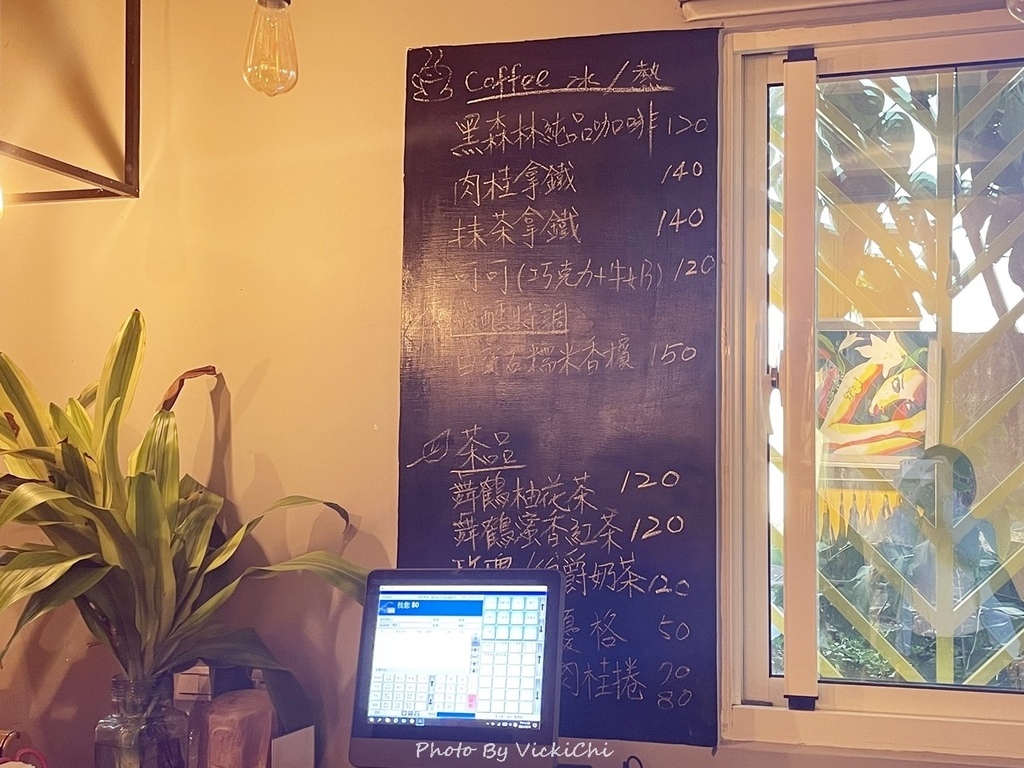 Coffee 冰/熱
黑森林純品咖啡 120
肉桂拿鐵 140
抹茶拿鐵 140
可可(巧克力+牛奶) 120
特調
糯米香檳 150
茶品
舞鶴柚花茶 120
舞鶴蜜香紅茶 120
伯爵奶茶 120
優格 50
肉桂捲 70
80
找您 $0
Photo By VickiChi